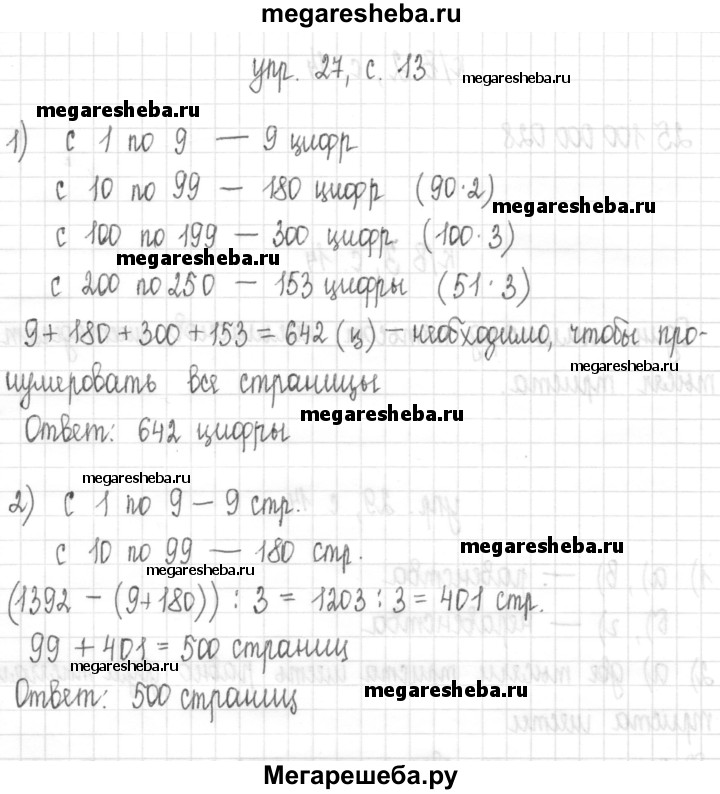 megaresheba.ru
упр. 27, с. 13 megaresheba.ru
megaresheba.ru
1) с 1 по 9 — 9 цифр
с 10 по 99 — 180 цифр (90·2)
megaresheba.ru
с 100 по 199 — 300 цифр (100·3)
megaresheba.ru
с 200 по 250 — 153 цифры (51·3)
9+180+300+153=642 (ц) — необходимо, чтобы про-
megaresheba.ru
нумеровать все страницы
megaresheba.ru
Ответ: 642 цифры
megaresheba.ru
2) с 1 по 9 — 9 стр.
с 10 по 99 — 180 стр. megaresheba.ru
megaresheba.ru
(1392 — (9+180)) : 3 = 1203 : 3 = 401 стр.
99 + 401 = 500 страниц
megaresheba.ru
Ответ: 500 страниц megaresheba.ru
Мегарешеба.ру